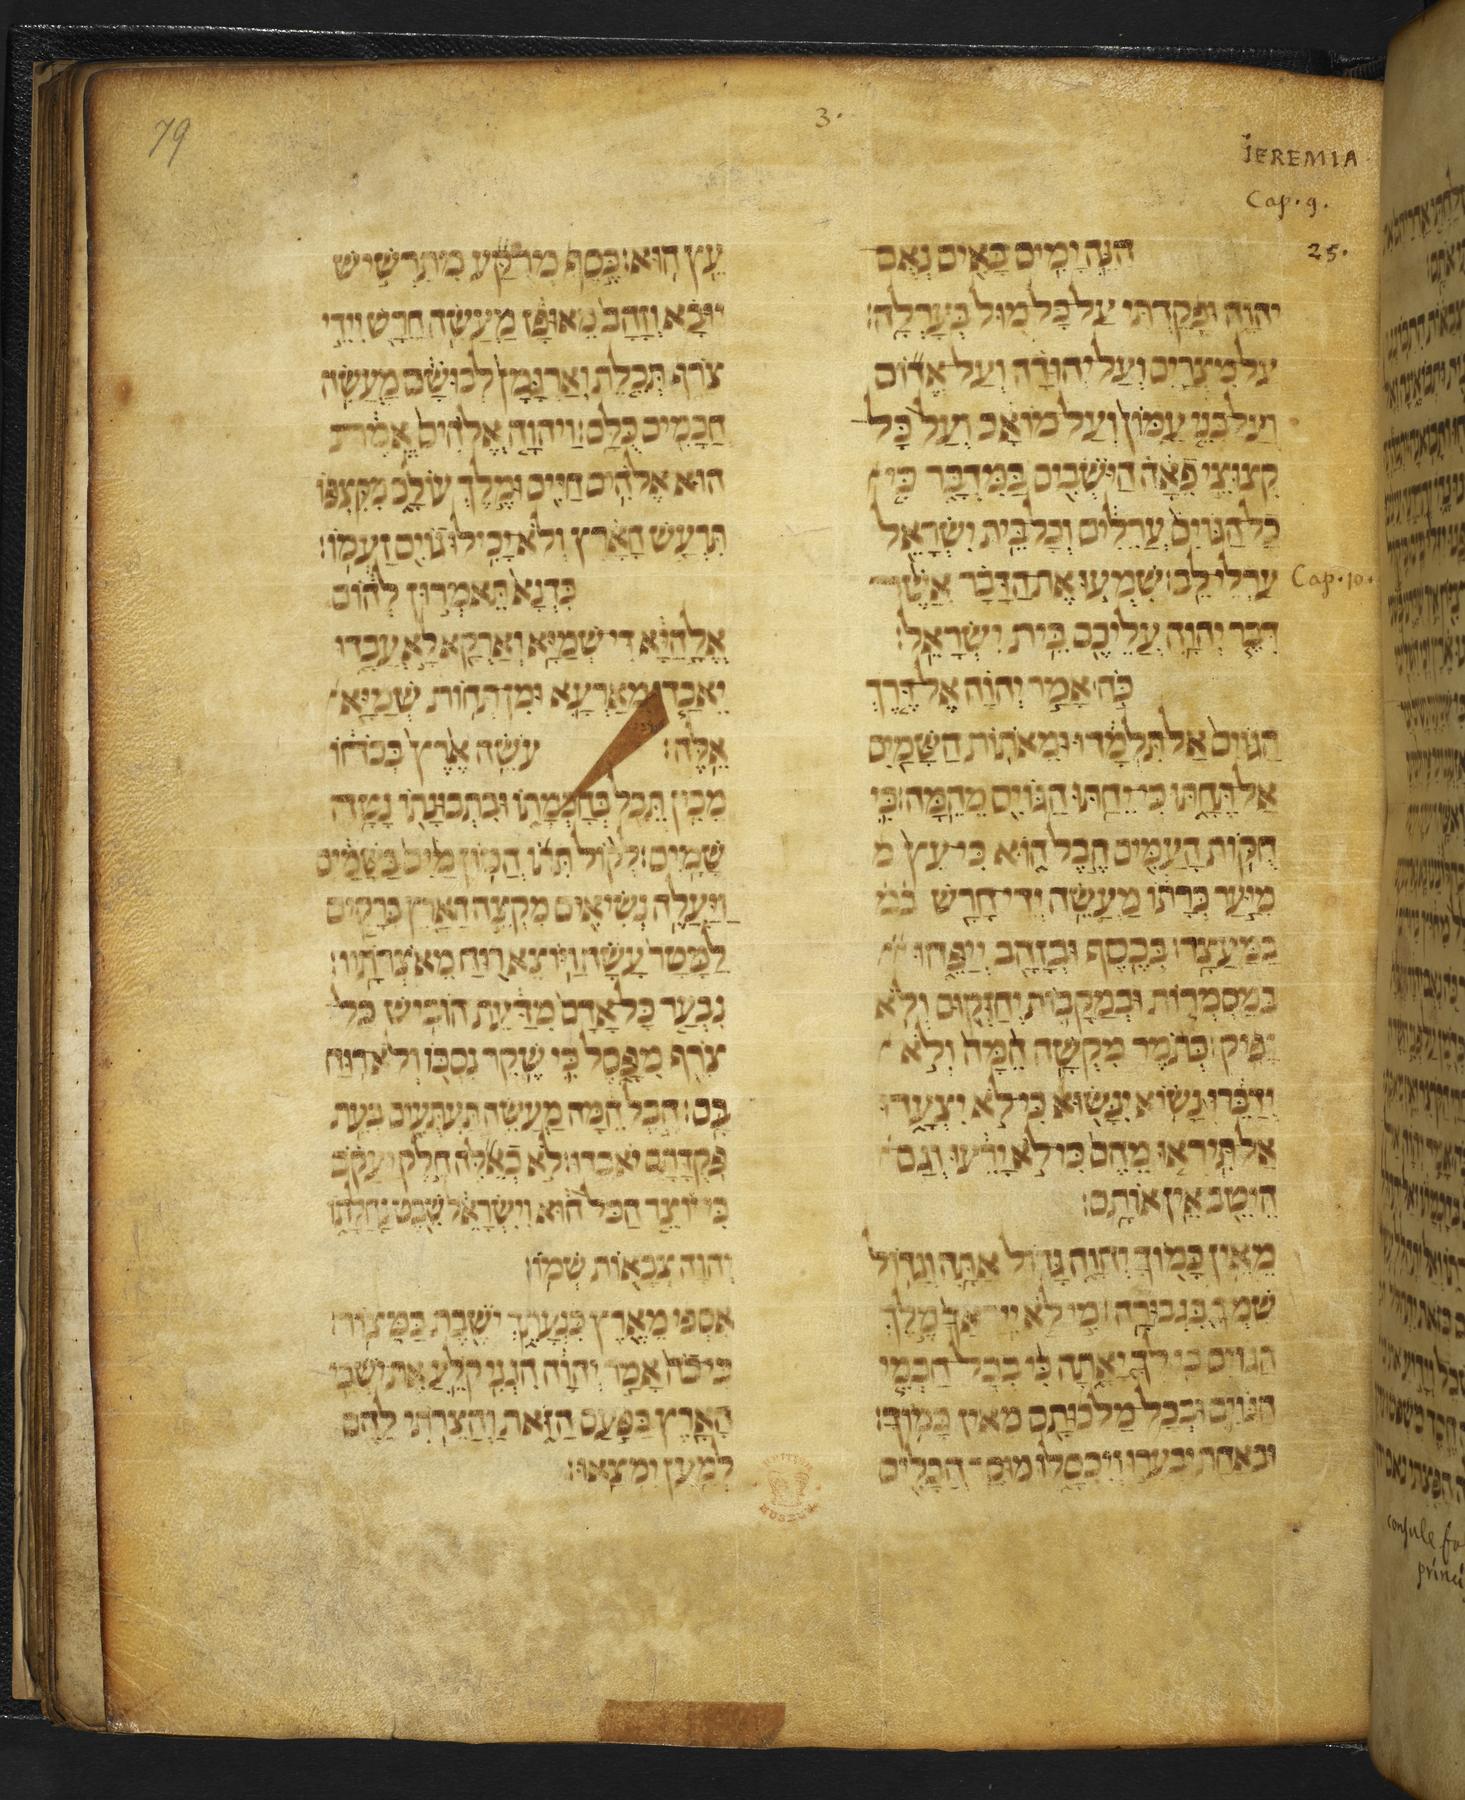 79
3.
IEREMIA
Cap. 9.
25.
הִנֵּה יָמִים בָּאִים נְאֻם
יהוָה וּפָקַדְתִּי עַל כָּל מוּל בְּעָרְלָה׃
עַל מִצְרַיִם וְעַל יְהוּדָה וְעַל אֱדוֹם
וְעַל בְּנֵי עַמּוֹן וְעַל מוֹאָב וְעַל כָּל
קְצוּצֵי פֵאָה הַיֹּשְׁבִים בַּמִּדְבָּר כִּי
כָל הַגּוֹיִם עֲרֵלִים וְכָל בֵּית יִשְׂרָאֵל
עַרְלֵי לֵב׃ שִׁמְעוּ אֶת הַדָּבָר אֲשֶׁר
Cap. 10.
דִּבֶּר יְהוָה עֲלֵיכֶם בֵּית יִשְׂרָאֵל׃
כֹּה אָמַר יְהוָה אֶל דֶּרֶךְ
הַגּוֹיִם אַל תִּלְמָדוּ וּמֵאֹתוֹת הַשָּׁמַיִם
אַל תֵּחָתּוּ כִּי יֵחַתּוּ הַגּוֹיִם מֵהֵמָּה׃ כִּי
חֻקּוֹת הָעַמִּים הֶבֶל הוּא כִּי עֵץ מ
מִיַּעַר כְּרָתוֹ מַעֲשֵׂה יְדֵי חָרָשׁ במ
בַּמַּעֲצָד׃ בְּכֶסֶף וּבְזָהָב יְיַפֵּהוּ
בְּמַסְמְרוֹת וּבְמַקָּבוֹת יְחַזְּקוּם וְלֹא
יָפִיק׃ כְּתֹמֶר מִקְשָׁה הֵמָּה וְלֹא
יְדַבֵּרוּ נָשׂוֹא יִנָּשׂוּא כִּי לֹא יִצְעָדוּ
אַל תִּירְאוּ מֵהֶם כִּי לֹא יָרֵעוּ וְגַם
הֵיטֵב אֵין אוֹתָם׃
מֵאֵין כָּמוֹךָ יְהוָה גָּדוֹל אַתָּה וְגָדוֹל
שִׁמְךָ בִּגְבוּרָה׃ מִי לֹא יִרָאֲךָ מֶלֶךְ
הַגּוֹיִם כִּי לְךָ יָאָתָה כִּי בְכָל חַכְמֵי
הַגּוֹיִם וּבְכָל מַלְכוּתָם מֵאֵין כָּמוֹךָ׃
וּבְאַחַת יִבְעֲרוּ וְיִכְסָלוּ מוּסַר הֲבָלִים
עֵץ הוּא׃ כֶּסֶף מְרֻקָּע מִתַּרְשִׁישׁ
יוּבָא וְזָהָב מֵאוּפָז מַעֲשֵׂה חָרָשׁ וִידֵי
צוֹרֵף תְּכֵלֶת וְאַרְגָּמָן לְבוּשָׁם מַעֲשֵׂה
חֲכָמִים כֻּלָּם׃ וַיהוָה אֱלֹהִים אֱמֶת
הוּא אֱלֹהִים חַיִּים וּמֶלֶךְ עוֹלָם מִקִּצְפּוֹ
תִּרְעַשׁ הָאָרֶץ וְלֹא יָכִילוּ גוֹיִם זַעְמוֹ׃
כִּדְנָא תֵּאמְרוּן לְהוֹם
אֱלָהַיָּא דִּי שְׁמַיָּא וְאַרְקָא לָא עֲבַדוּ
יֵאבַדוּ מֵאַרְעָא וּמִן תְּחוֹת שְׁמַיָּא
אֵלֶּה׃ עֹשֵׂה אֶרֶץ בְּכֹחוֹ
מֵכִין תֵּבֵל בְּחָכְמָתוֹ וּבִתְבוּנָתוֹ נָטָה
שָׁמָיִם׃ לְקוֹל תִּתּוֹ הֲמוֹן מַיִם בַּשָּׁמַיִם
וַיַּעֲלֶה נְשִׂיאִים מִקְצֵה הָאָרֶץ בְּרָקִים
לַמָּטָר עָשָׂה וַיּוֹצֵא רוּחַ מֵאֹצְרֹתָיו׃
נִבְעַר כָּל אָדָם מִדַּעַת הוֹבִישׁ כָּל
צוֹרֵף מִפָּסֶל כִּי שֶׁקֶר נִסְכּוֹ וְלֹא רוּחַ
בָּם׃ הֶבֶל הֵמָּה מַעֲשֵׂה תַּעְתֻּעִים בְּעֵת
פְּקֻדָּתָם יֹאבֵדוּ׃ לֹא כְאֵלֶּה חֵלֶק יַעֲקֹב
כִּי יוֹצֵר הַכֹּל הוּא וְיִשְׂרָאֵל שֵׁבֶט נַחֲלָתוֹ
יְהוָה צְבָאוֹת שְׁמוֹ׃
אִסְפִּי מֵאֶרֶץ כִּנְעָתֵךְ יֹשֶׁבֶת בַּמָּצוֹר׃
כִּי כֹה אָמַר יְהוָה הִנְנִי קוֹלֵעַ אֶת יֹשְׁבֵי
הָאָרֶץ בַּפַּעַם הַזֹּאת וַהֲצֵרֹתִי לָהֶם
לְמַעַן יִמְצָאוּ׃
MUSEUM
consule